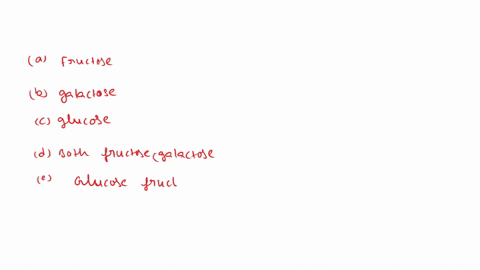 (a) Fructose
(b) galactose
(c) glucose
(d) Both fructose, galactose
(e) Glucose fruct